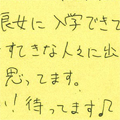 良女に入学できて
すてきな人々に出
思ってます。
い!待ってます♫